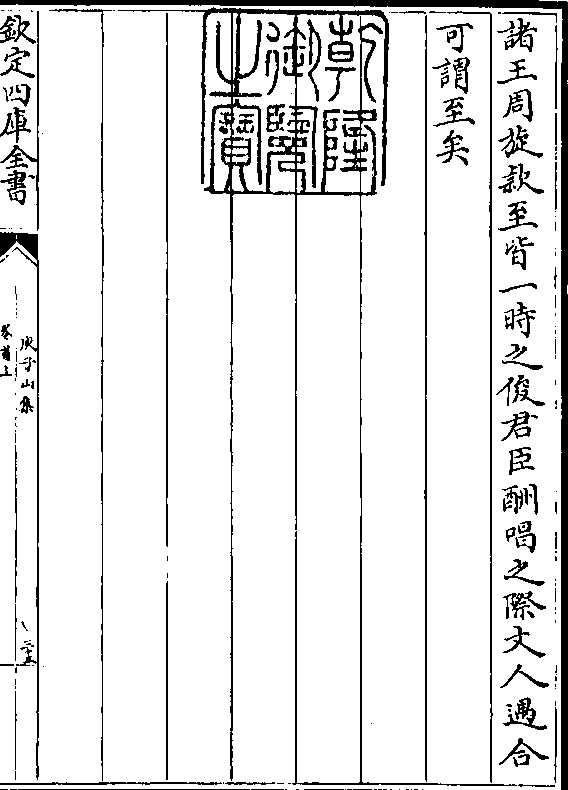 諸王周旋款至皆一時之俊君臣酬唱之際文人遇合
可謂至矣
乾隆御覽之寶
欽定四庫全書
庾子山集
卷首上